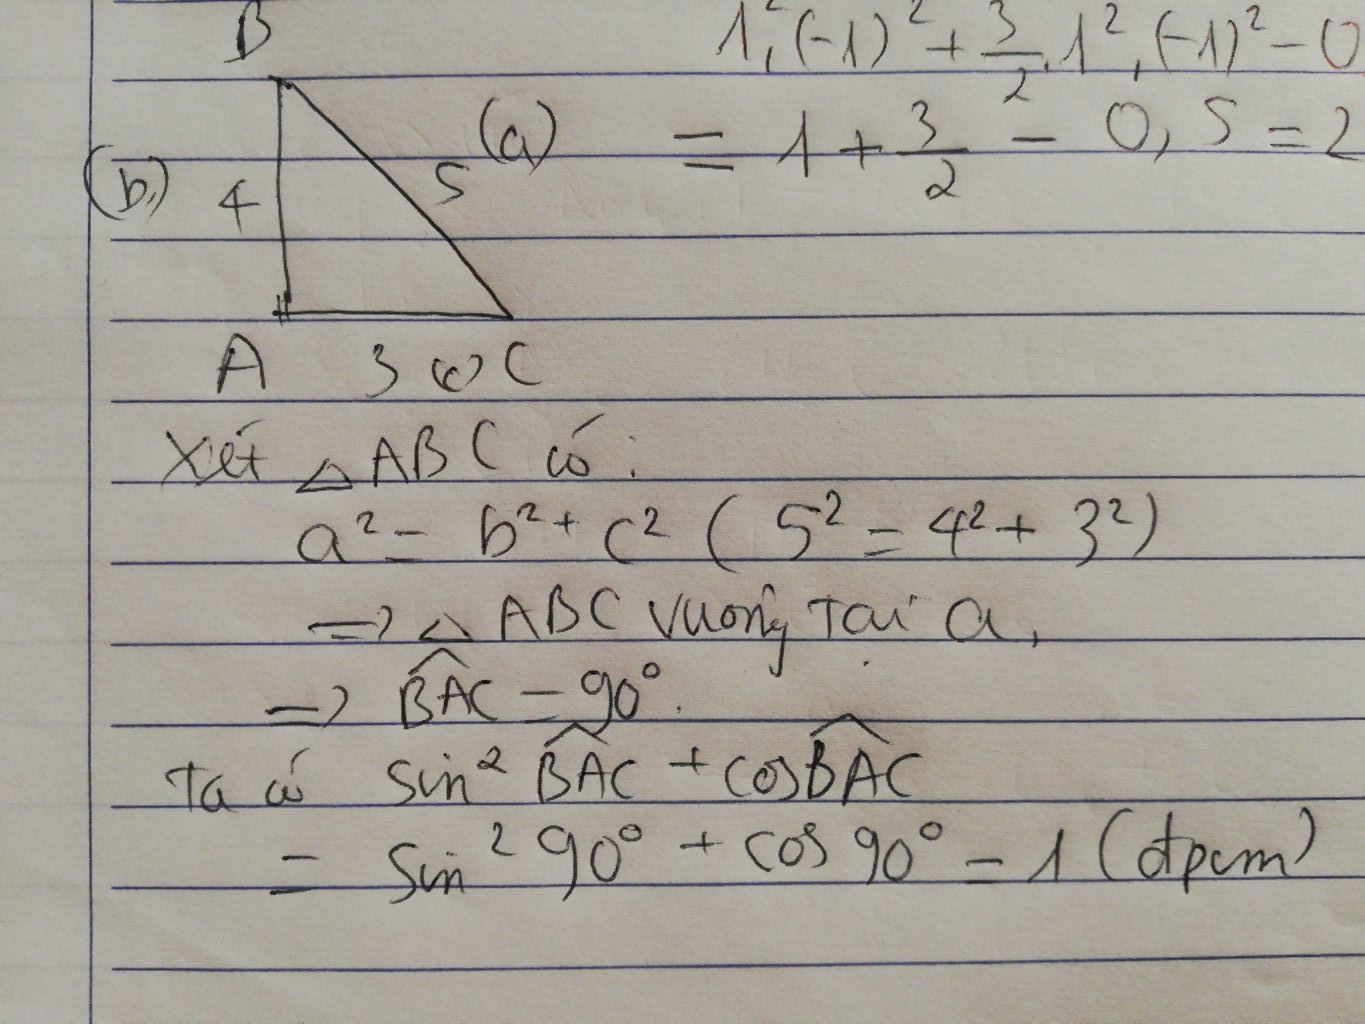 B
1²,(-1)² + 3/2.1²,(-1)² - 0
(a) = 1 + 3/2 - 0,5 = 2
(b,) 4 5
A 3 (c) C
Xét △ABC có:
a² = b² + c² ( 5² = 4² + 3²)
=> △ ABC vuông tại a,
=> BAC = 90°.
Ta có sin² BAC + cosBAC
= sin² 90° + cos 90° = 1 (đpcm)